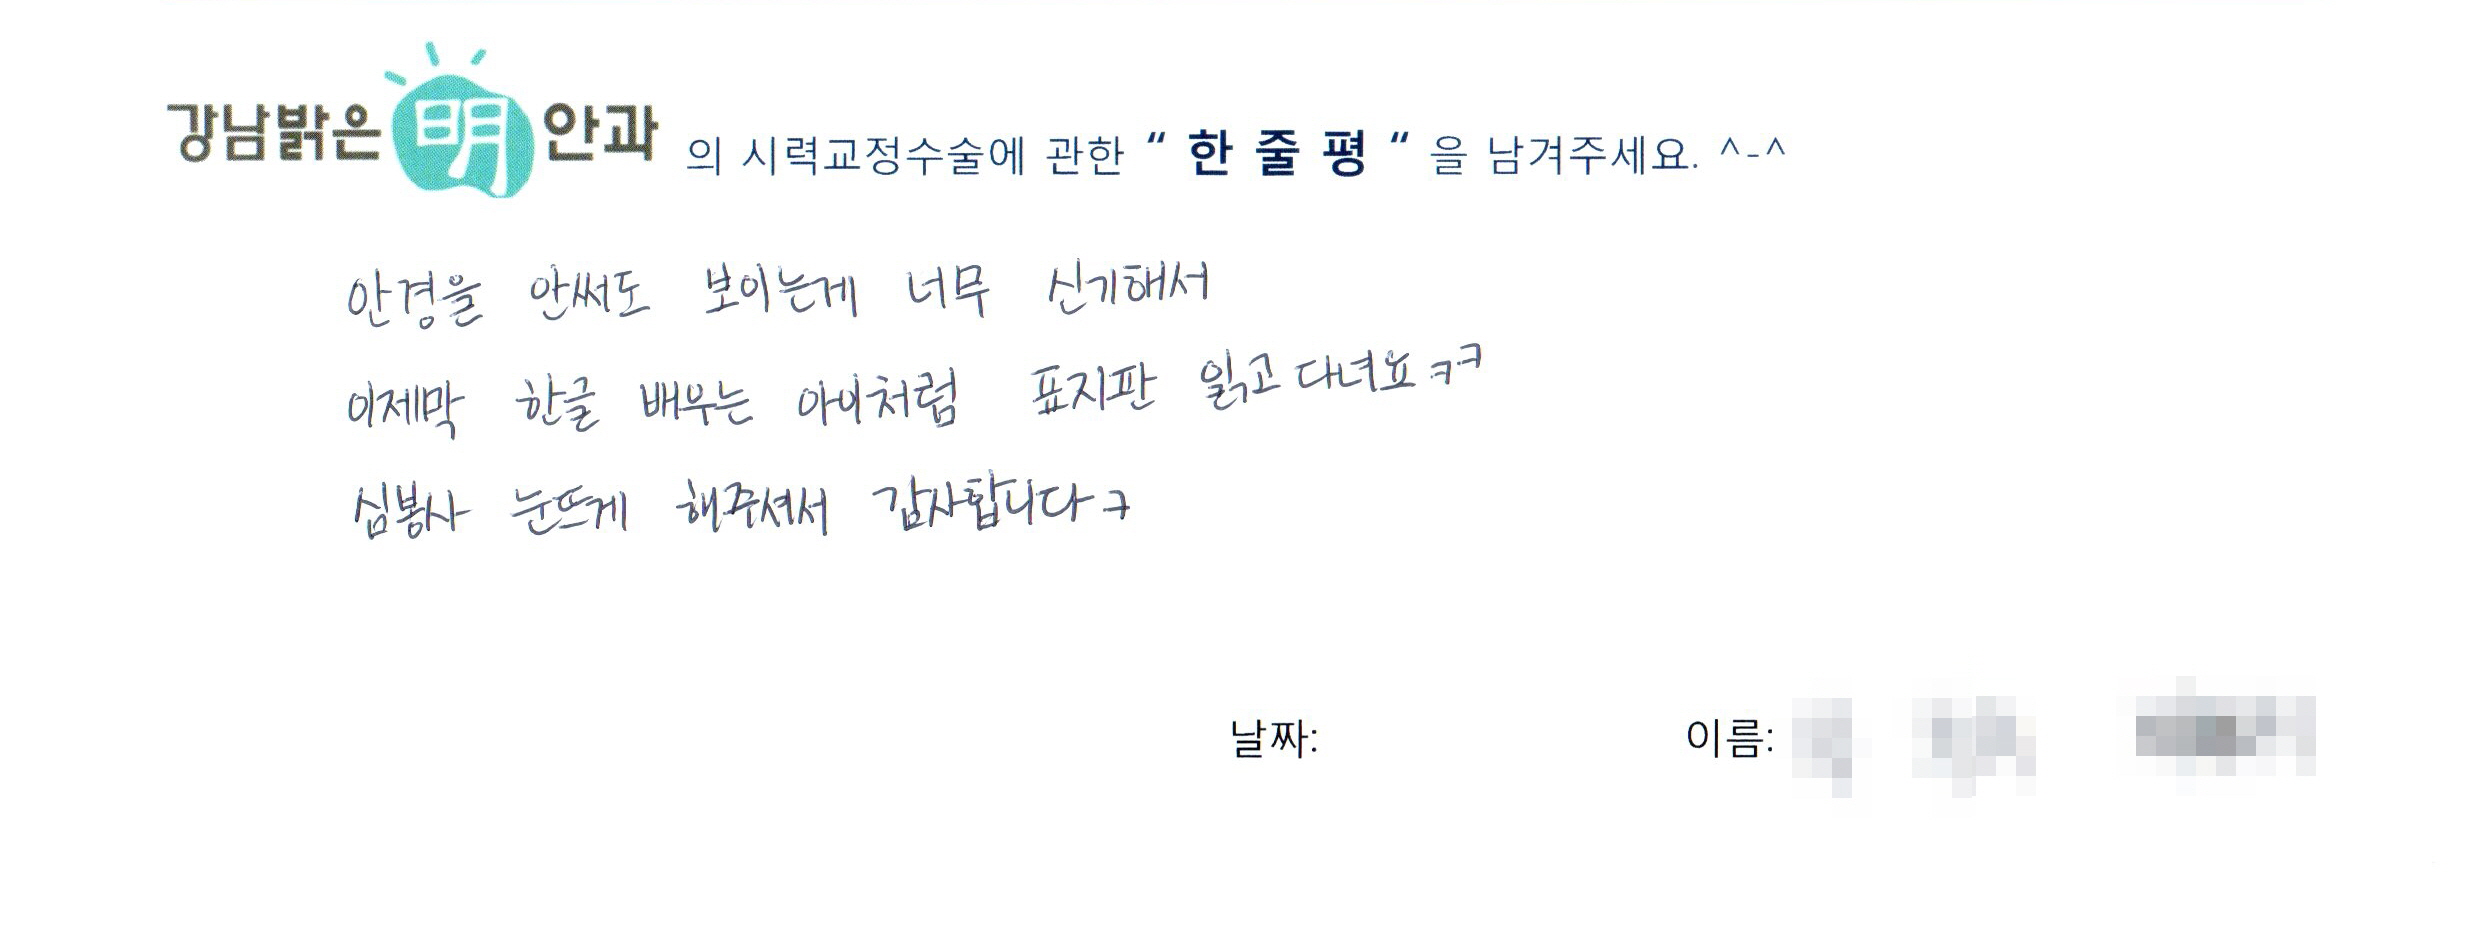 강남밝은明안과 의 시력교정수술에 관한 “ 한 줄 평 “ 을 남겨주세요. ^-^
안경을 안써도 보이는게 너무 신기해서
이제막 한글 배우는 아이처럼 표지판 읽고 다녀요 ㅋㅋ
심봉사 눈뜨게 해주셔서 감사합니다 ㅋ
날짜: 이름: